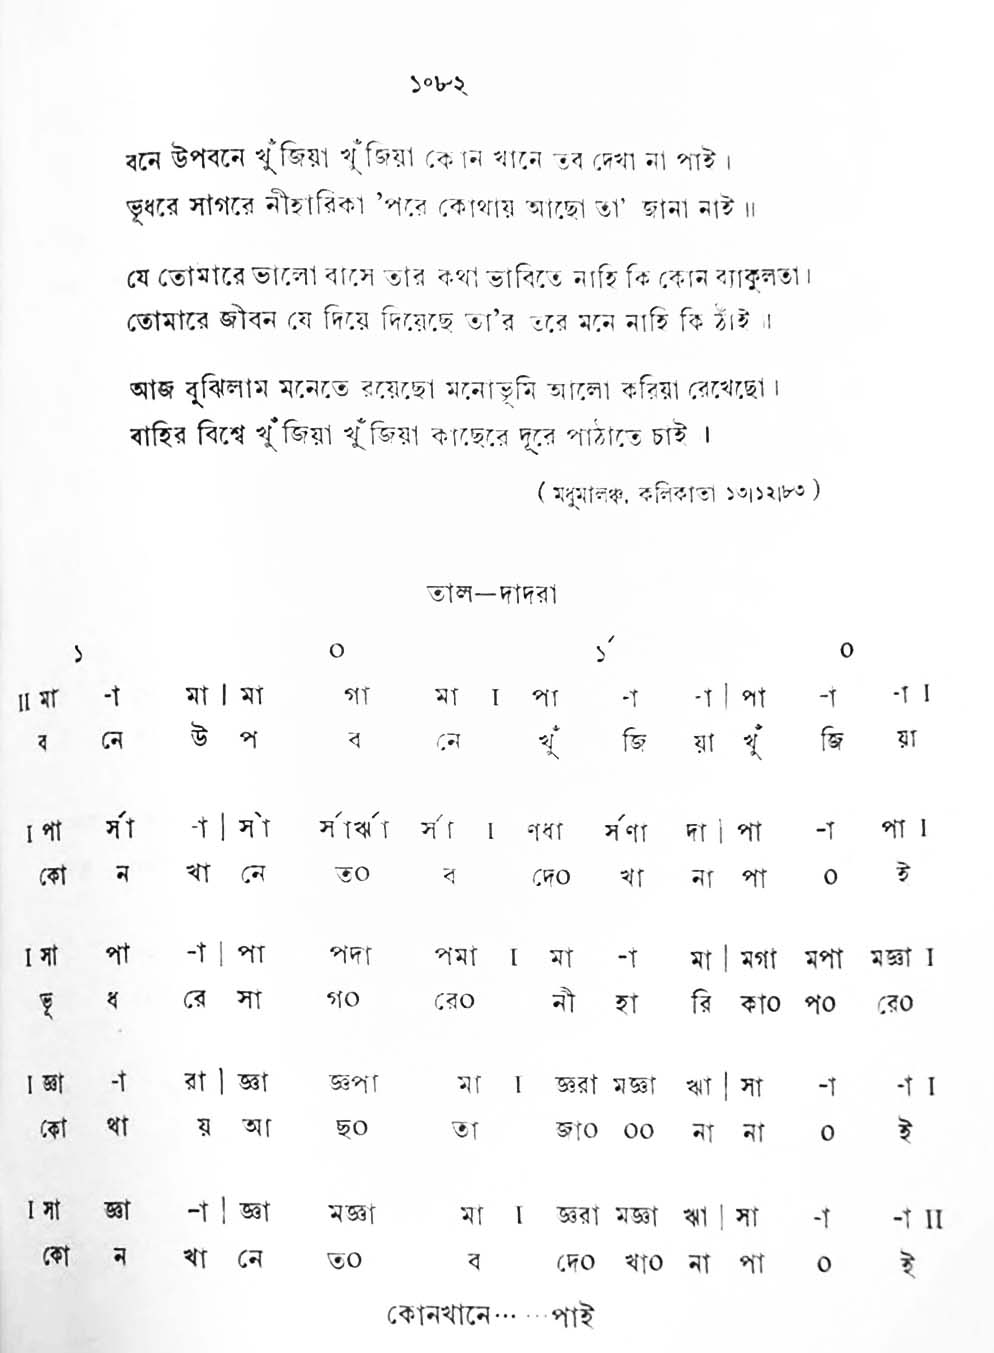 ১০৮২
বনে উপবনে খুঁজিয়া খুঁজিয়া কোন খানে তব দেখা না পাই।
ভূধরে সাগরে নীহারিকা 'পরে কোথায় আছো তা' জানা নাই॥
যে তোমারে ভালো বাসে তার কথা ভাবিতে নাহি কি কোন ব্যাকুলতা।
তোমারে জীবন যে দিয়ে দিয়েছে তা'র তরে মনে নাহি কি ঠাঁই॥
আজ বুঝিলাম মনেতে রয়েছো মনোভূমি আলো করিয়া রেখেছো।
বাহির বিশ্বে খুঁজিয়া খুঁজিয়া কাছেরে দূরে পাঠাতে চাই।
( মধুমালঞ্চ, কলিকাতা ১৩।১২।৮৩ )
তাল—দাদরা
১ ০ ১´ ০
II মা -া মা | মা গা মা I পা -া -া | পা -া -া I
ব নে উ প ব নে খুঁ জি য়া খুঁ জি য়া
I পা র্সা -া | র্সা র্সার্ঋা র্সা I ণধা র্সণা দা | পা -া পা I
কো ন খা নে ত০ ব দে০ খা না পা ০ ই
I সা পা -া | পা পদা পমা I মা -া মা | মগা মপা মজ্ঞা I
ভূ ধ রে সা গ০ রে০ নী হা রি কা০ প০ রে০
I জ্ঞা -া রা | জ্ঞা জ্ঞপা মা I জ্ঞরা মজ্ঞা ঋা | সা -া -া I
কো থা য় আ ছ০ তা জা০ ০০ না না ০ ই
I সা জ্ঞা -া | জ্ঞা মজ্ঞা মা I জ্ঞরা মজ্ঞা ঋা | সা -া -া II
কো ন খা নে ত০ ব দে০ খা০ না পা ০ ই
কোনখানে... ...পাই